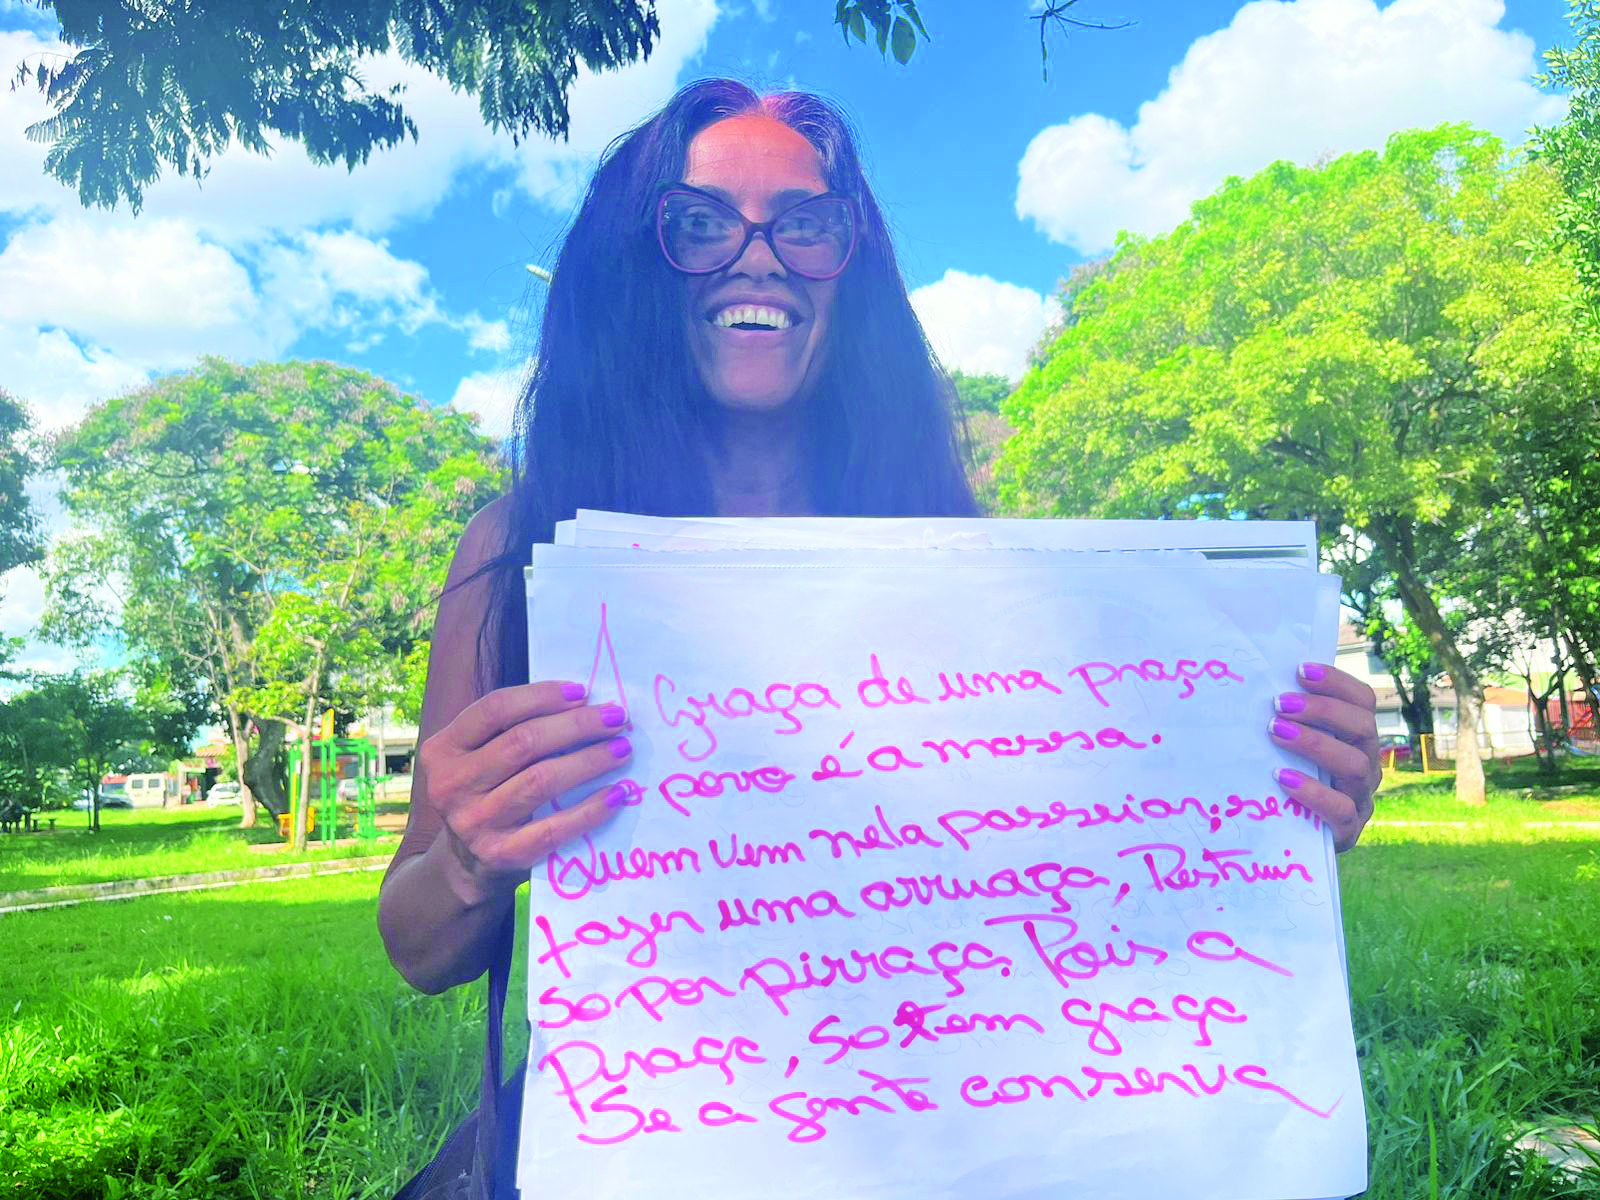 A Graça de uma praça
o povo é a massa.
Quem vem nela passeiar; sem
fazer uma arruaça, Restruir
so por pirraça. Pois a
Praça, so tem graça
Se a gente conserva